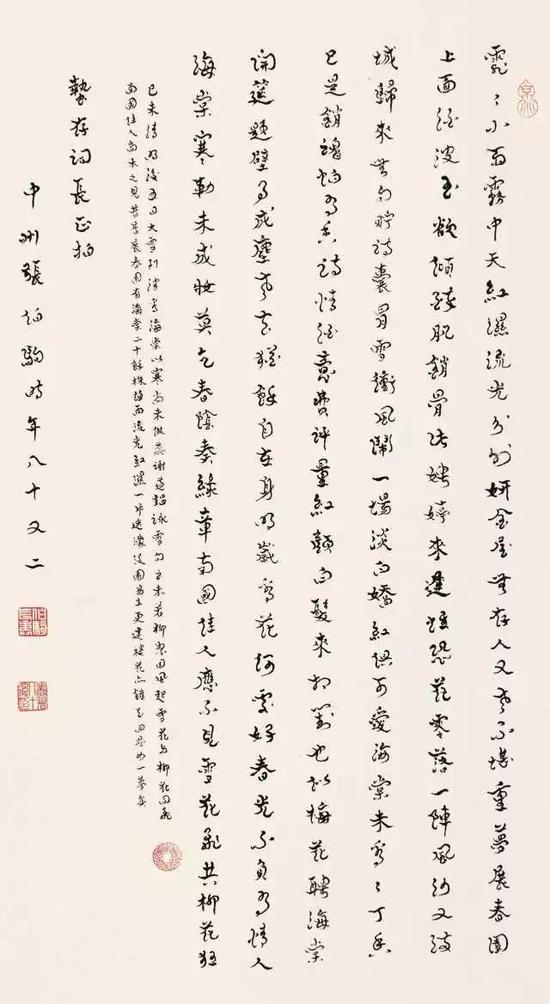 霏〻小雨霧中天紅濕流光分外妍金屋無存人又老不堪重夢展春園
上面波玉欲傾肌銷骨娉婷來遲恐花零落一陣風沙又
城歸來無句貯詩囊冒雪衝風鬧一場淡白嬌紅俱可愛海棠未看〻丁香
已是銷魂怕為詩情意費評量紅顏白髮來相對也似梅花聘海棠
開筵題壁事成塵老去猶餘自在身明歲看花何處好春光不負有情人
海棠寒勒未成妝莫乞春陰奏綠章南國佳人應不見雪花飛共柳花狂
己未清明後五日大雪到津看海棠以寒尚未放蕊謝道韞詠雪句云未若柳絮因風起雪花與柳花同飛
南國佳人尚未之見昔吾展春園有海棠二十餘株雨流光紅濕一片迷濛後園易主更建樓花亦鏟去回思如一夢矣
蟄存詞長正拍
中州張伯駒時年八十又二